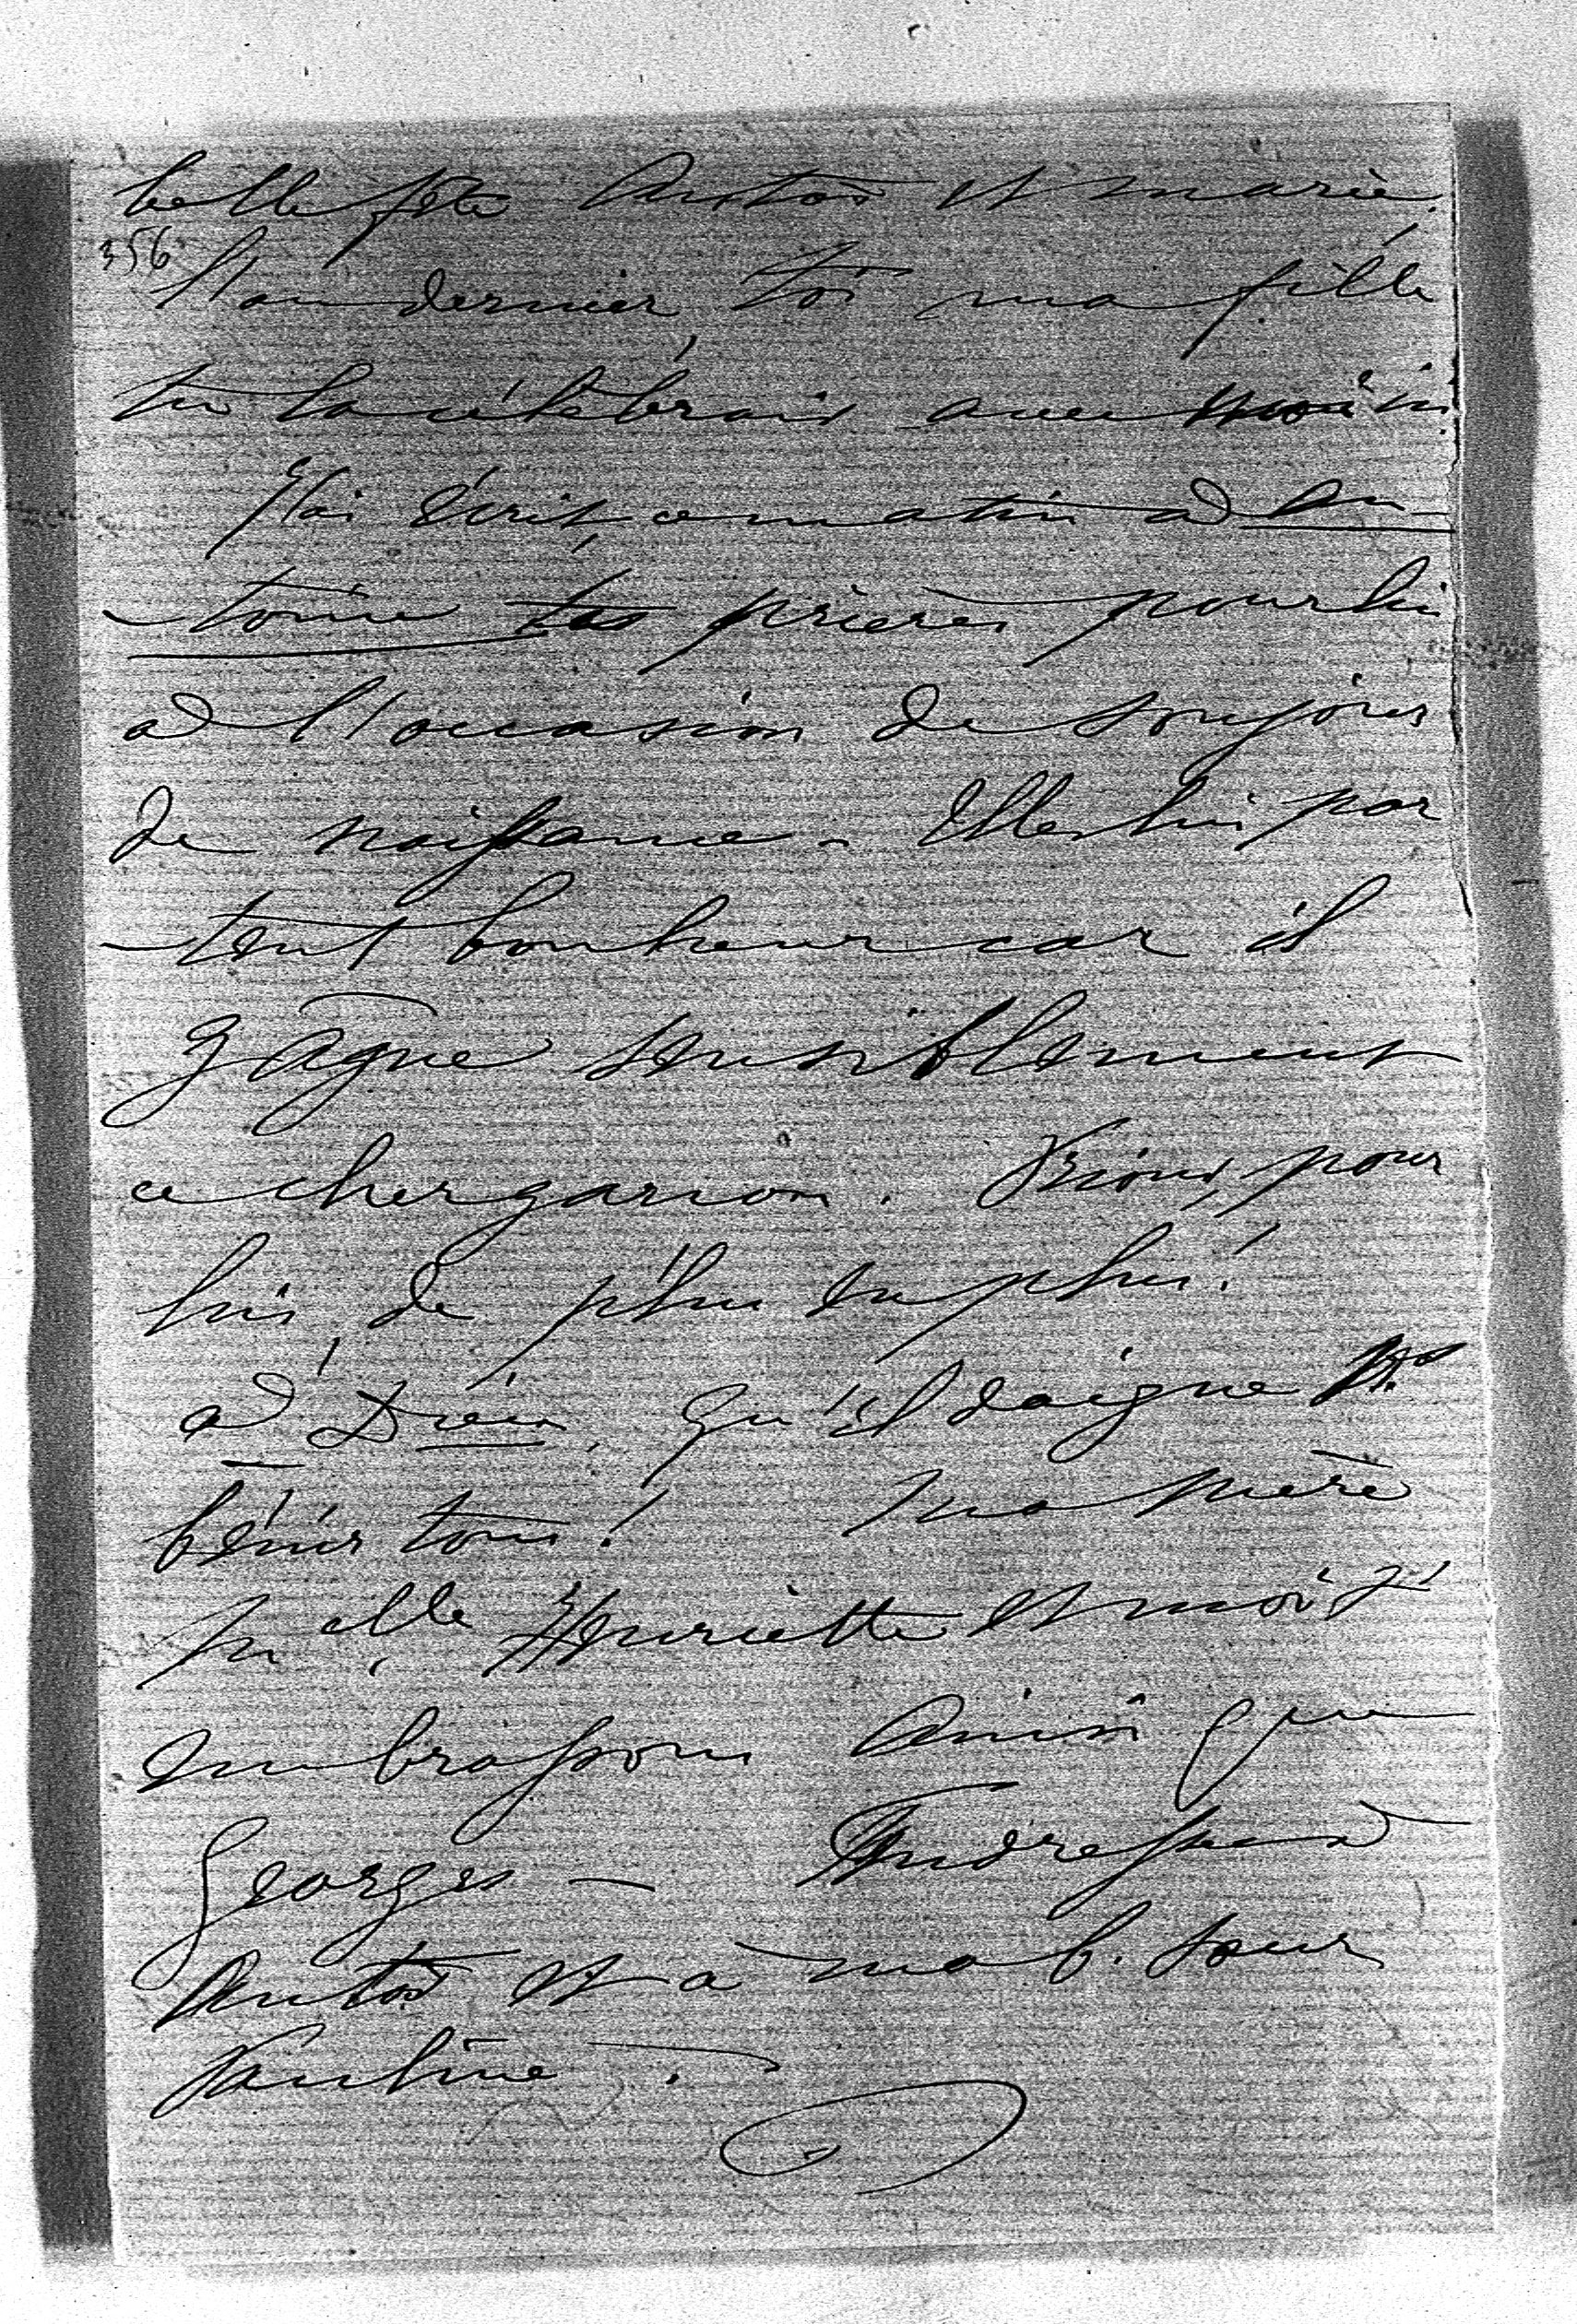 belle fête Antoi et Marie.
356
l'an dernier, toi ma fille
tu la célébrais avec moi ici
J'ai écrit ce matin à An-
toine tes prières pour lui
à l'occasion de son jour
de naissance. Elles lui por
tent bonheur car il
gâgne sensiblement
ce cher garçon. Prions, pour
lui, de plus en plus!
à Dieu. Qu'il daigne
bénir tous! Ma mère
Melle Henriette et moi t'
embrassons Ainsi que
Georges —
Antoi et à ma b. soeur
Pauline.